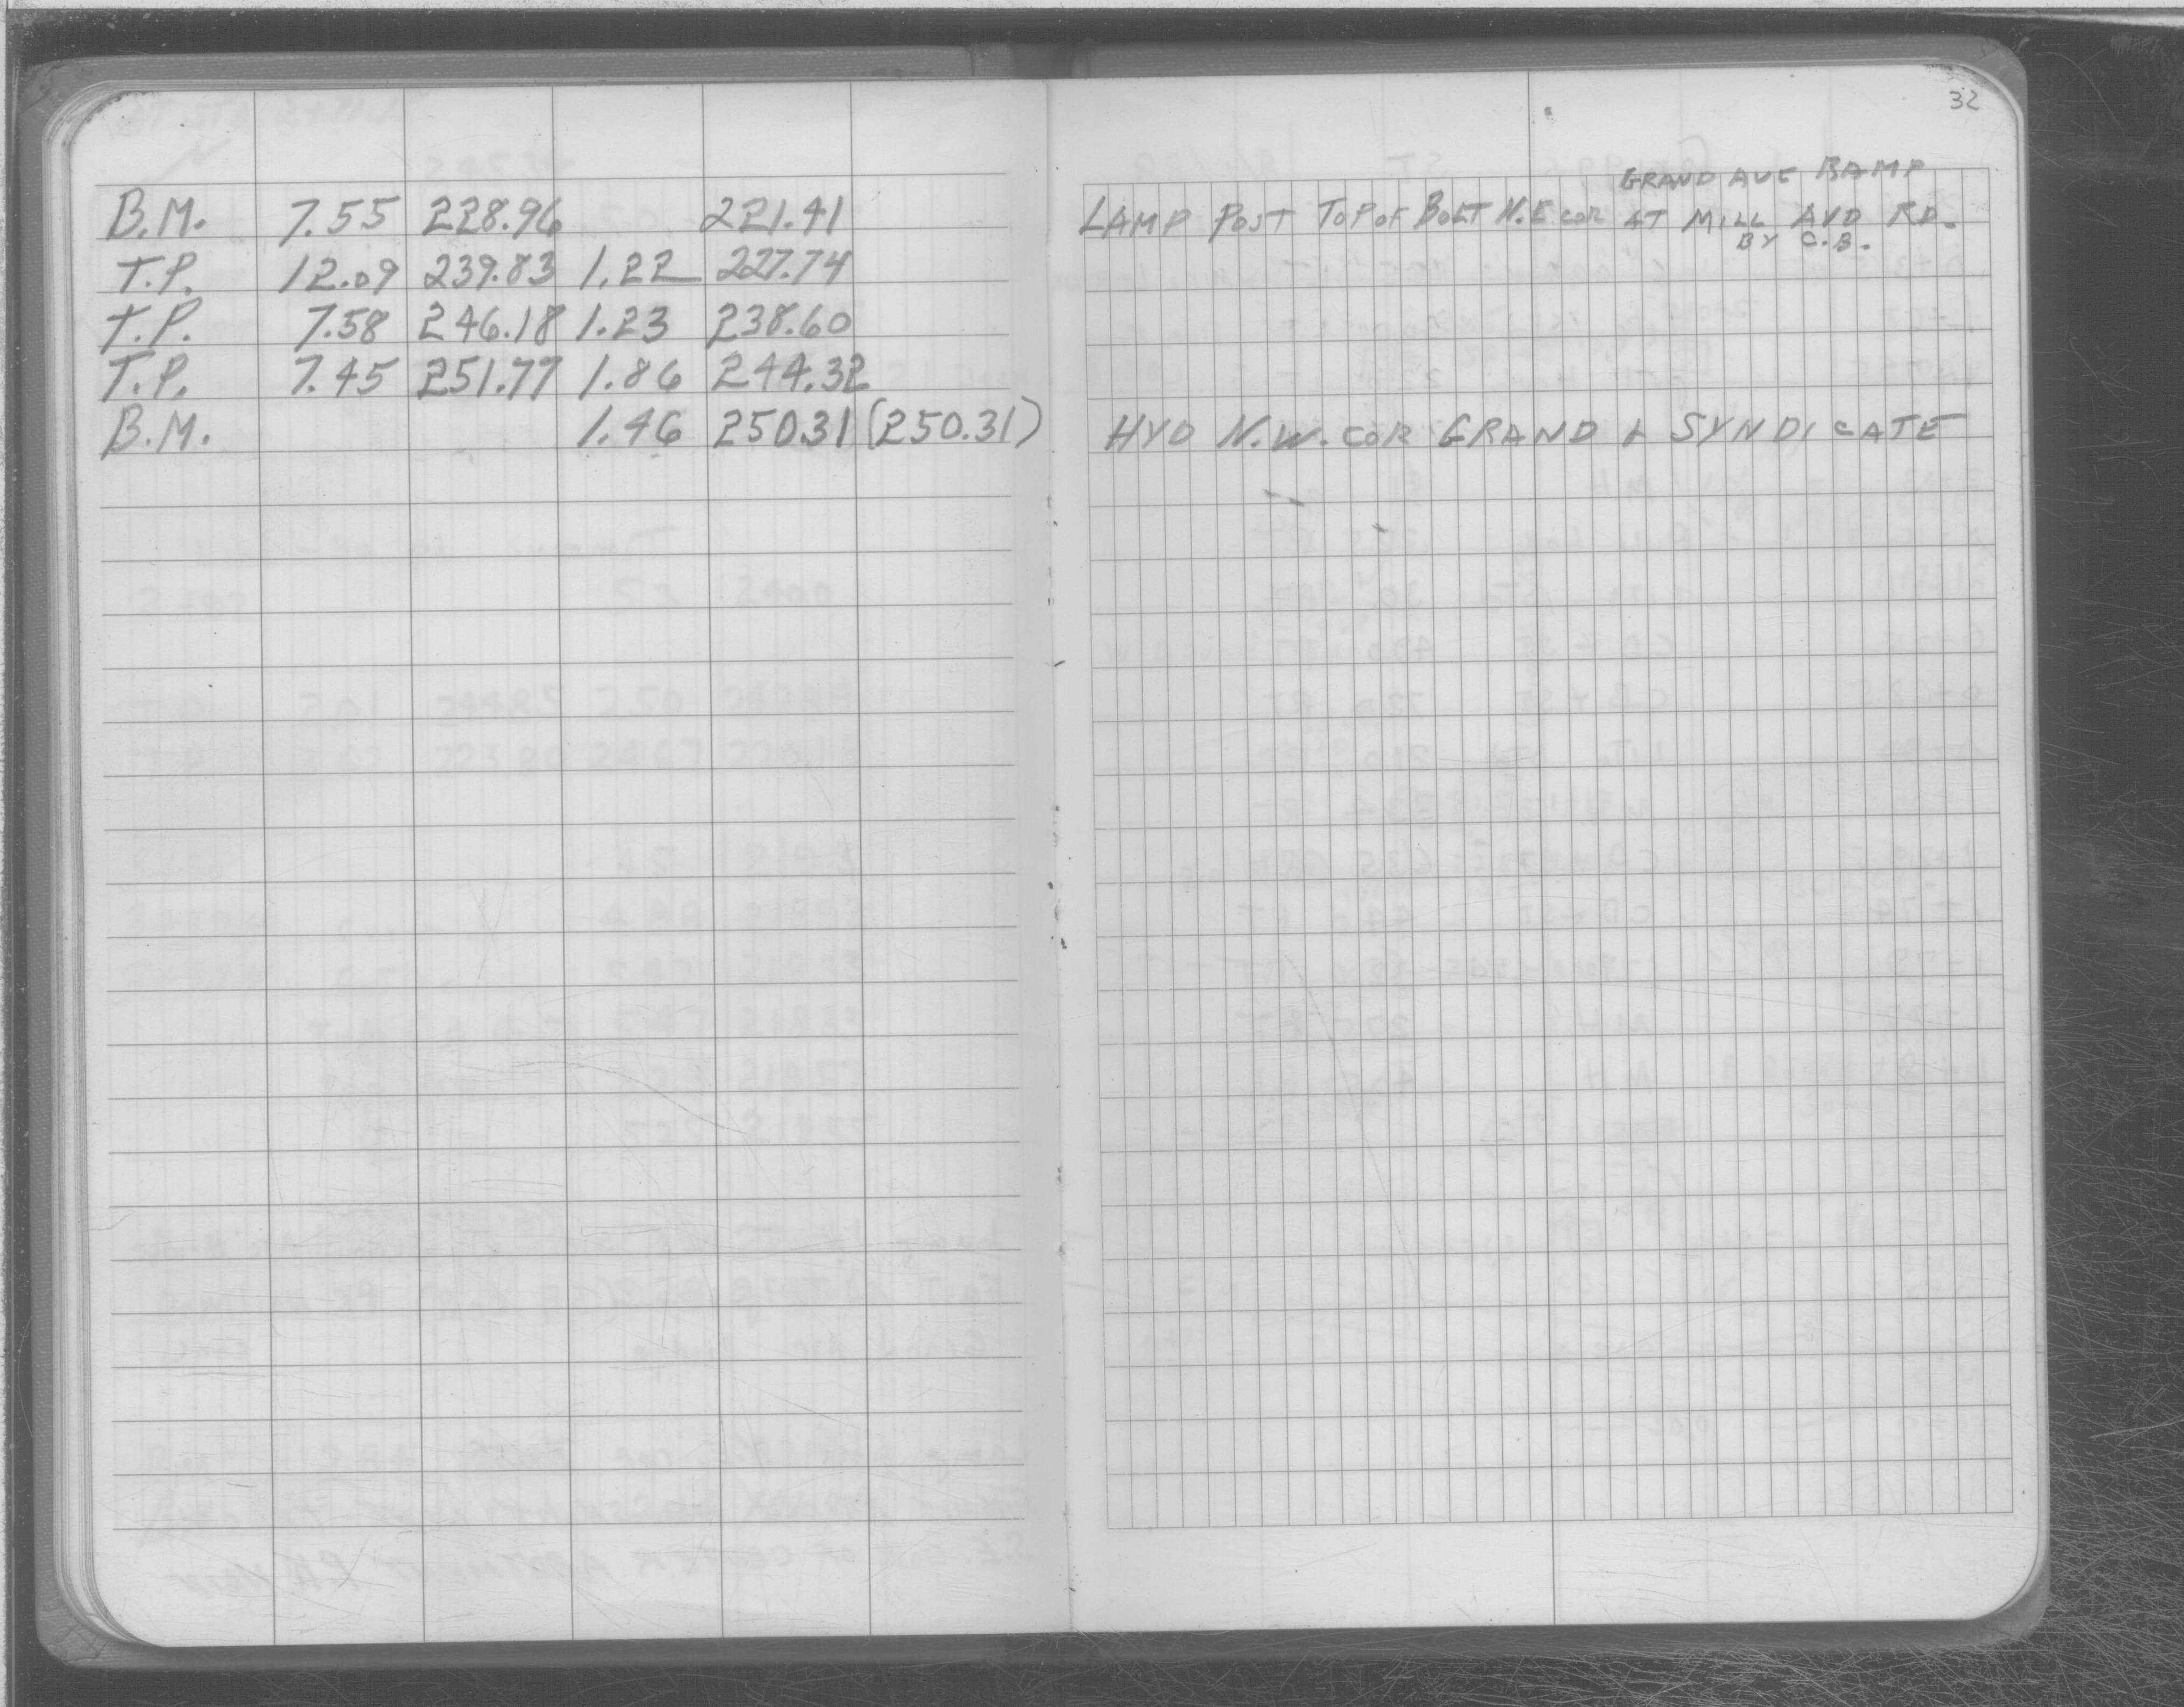 32
B.M. 7.55 228.96 221.41
T.P. 12.09 239.83 1.22 227.74
T.P. 7.58 246.18 1.23 238.60
T.P. 7.45 251.77 1.86 244.32
B.M. 1.46 250.31 (250.31)
GRAND AVE RAMP
LAMP POST TOP OF BOLT N.E COR AT MILL AND RD.
BY C.B.
HYD N.W. COR GRAND & SYNDICATE